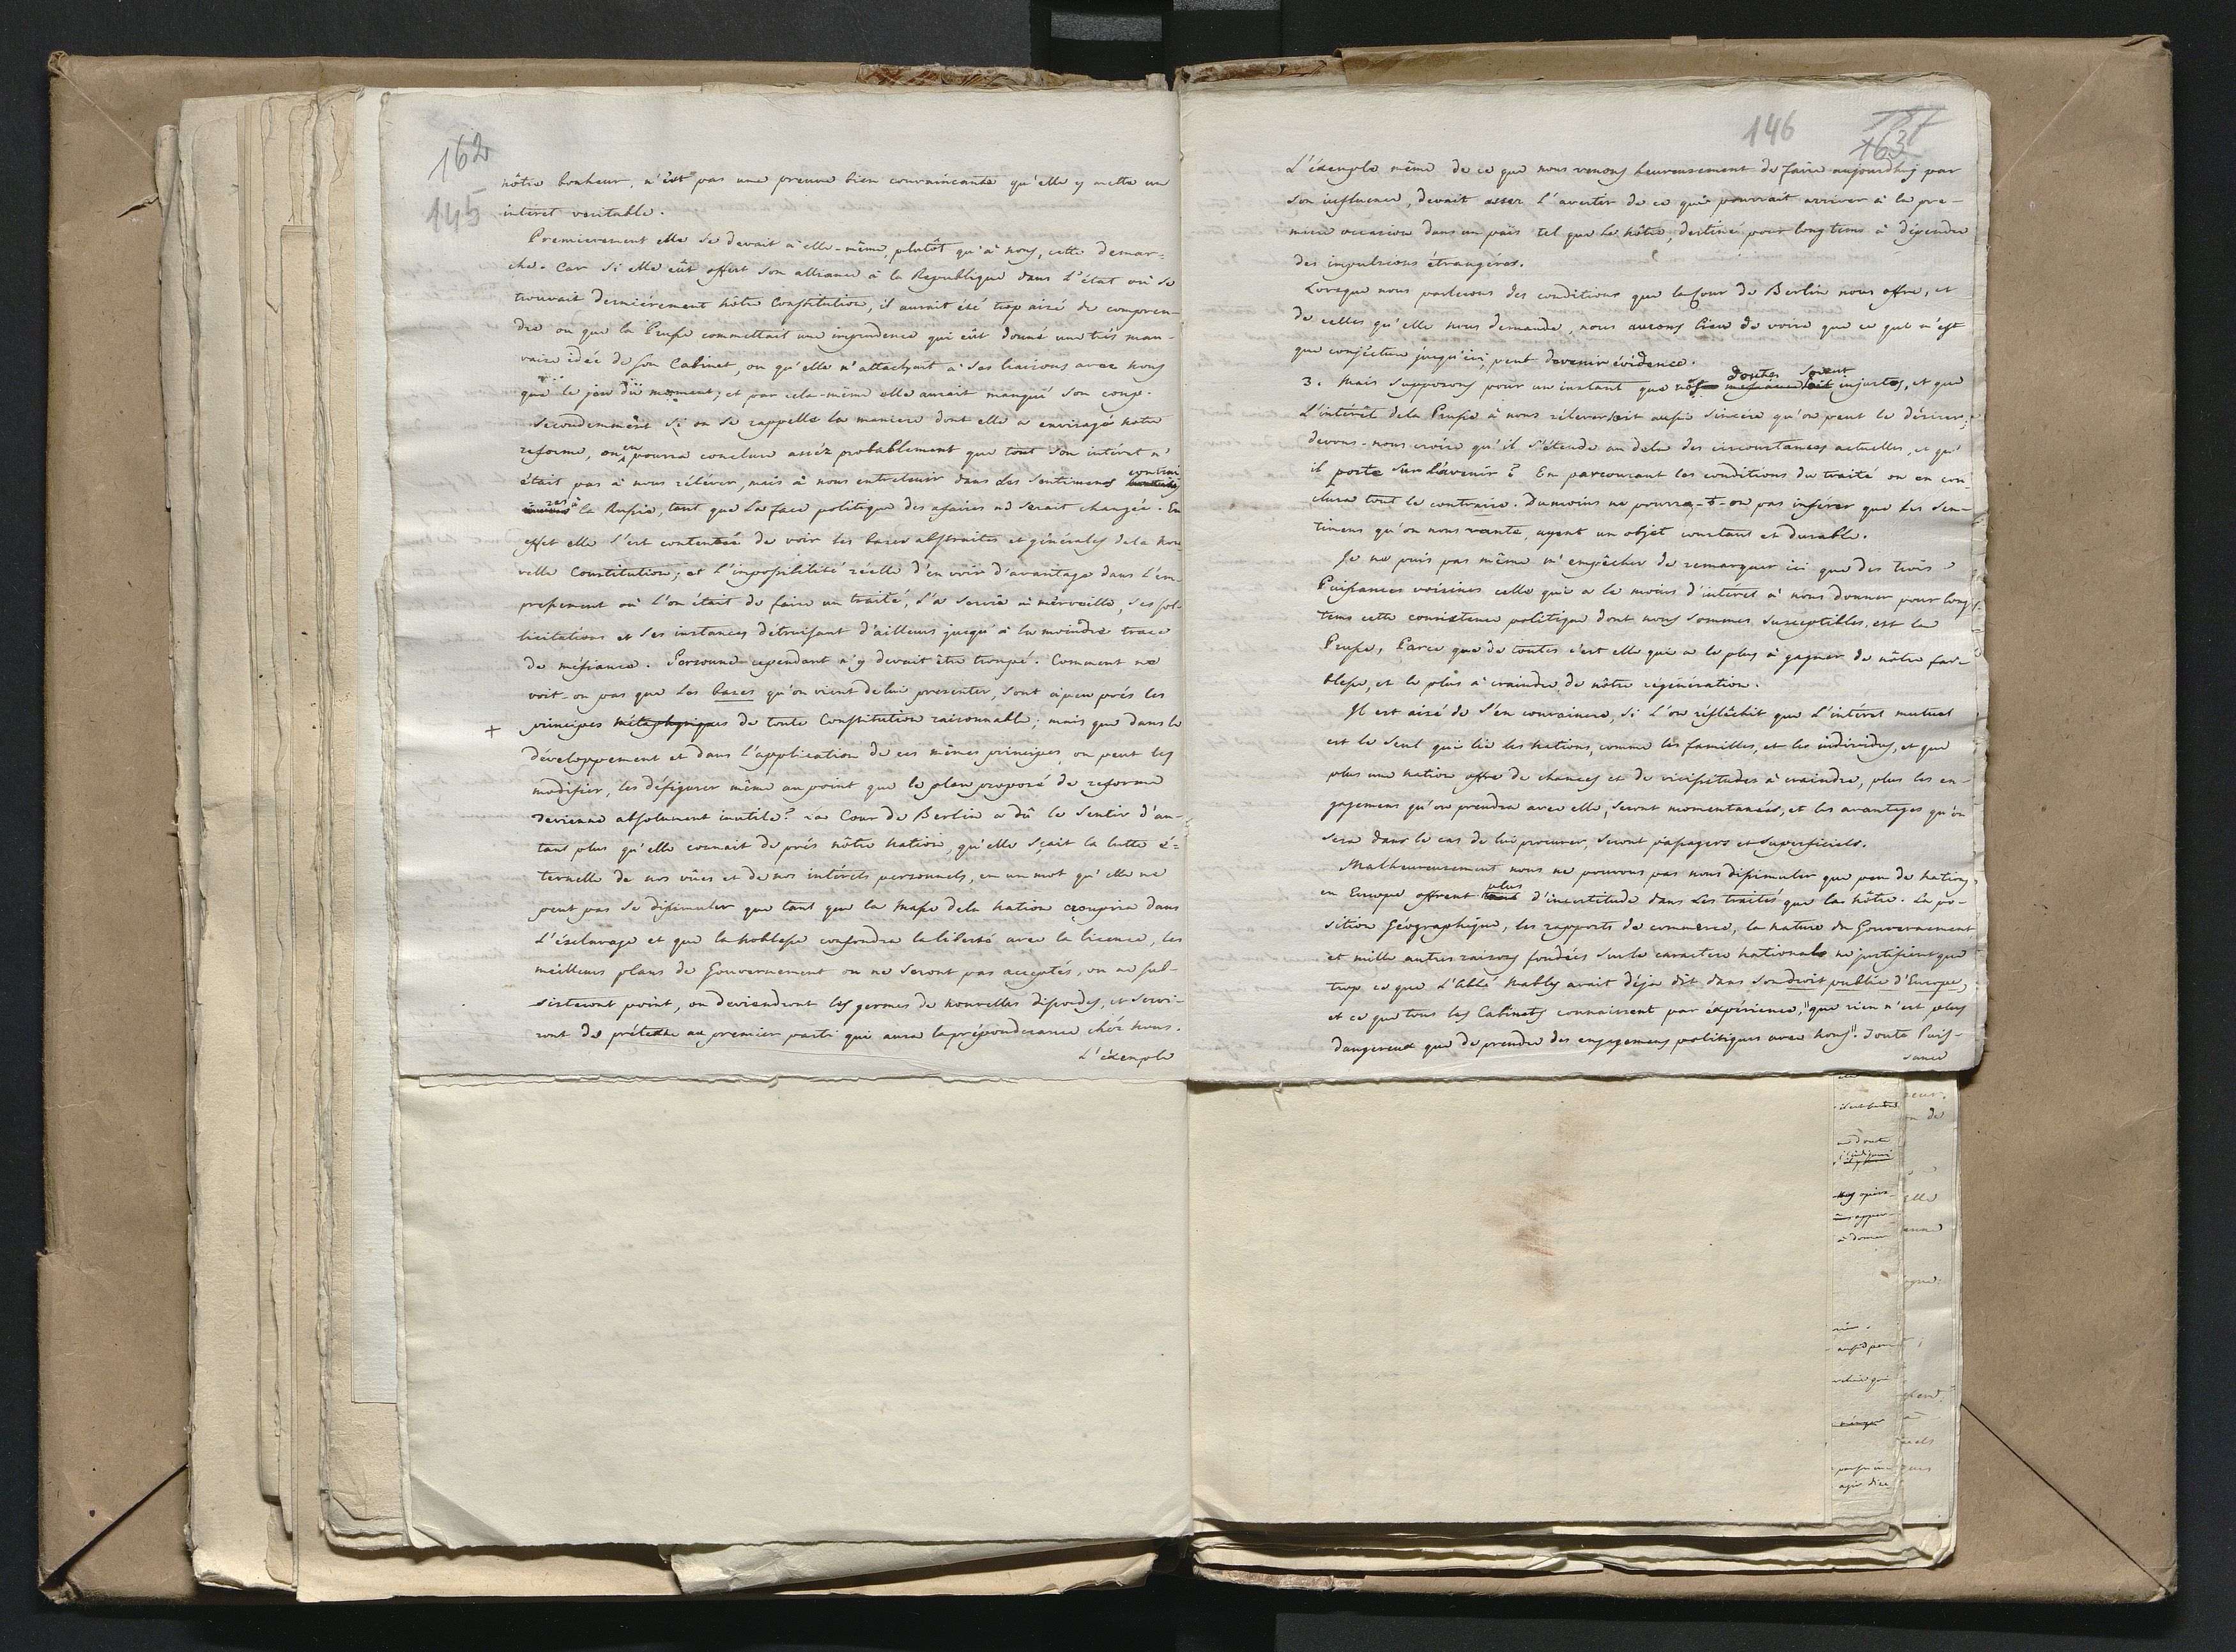 162
145
nôtre bonheur, n'est pas une preuve bien convaincante qu'elle y mette un
intéret veritable.
Premierement elle se devait à elle-même, plutôt qu'à nous, cette demar=
che. Car si elle eût offert son alliance à la Republique dans l'état où se
trouvait derniérement nôtre Constitution, il aurait été trop aisé de compren-
dre ou que la Prusse commettait une imprudence qui eût donné une trés mau-
vaise idée de son Cabinet, ou qu'elle n'attachait à ses liaisons avec nous
que le jeu du moment; et par cela-même elle aurait manqué son coup.
Secondemment si on se rappelle la maniere dont elle a envisagé notre
reforme, on en pourra conclure asséz probablement que tout son intéret n'
était pas à nous réléver, mais à nous entretenir dans des sentimens contrai
res à la Russie, tant que la face politique des afaires ne serait changée. En
effet elle s'est contentée de voir les bases abstraites et générales de la nou
velle Constitution; et l'impossibilité réelle d'en voir d'avantage dans l'em-
pressement où l'on était de faire un traité, l'a servie à mérveille, ses sol-
licitations et ses instances détruisant d'ailleurs jusqu'à la moindre trace
de méfiance. Personne cependant n'y devait être trompé. Comment ne
voit-on pas que les bases qu'on vient de lui presenter, sont àpeu prés les
+ principes métaphysiques de toute Constitution raisonnable; mais que dans le
développement et dans l'application de ces mêmes principes, on peut les
modifier, les défigurer même au point que le plan proposé de reforme
devienne absolument inutile? La Cour de Berlin a dû le sentir d'au-
tant plus qu'elle connait de prés nôtre nation, qu'elle sçait la lutte é=
ternelle de nos vûes et de nos intérêts personnels, en un mot qu'elle ne
peut pas se dissimuler que tant que la masse de la nation croupira dans
l'ésclavage et que la noblesse confondra la liberté avec la licence, les
meilleurs plans de Gouvernement ou ne seront pas acceptés, ou ne sub-
sisteront point, ou deviendront les germes de nouvelles discordes, et servi-
ront de prétexte au premier parti qui aura la préponderance chéz nous.
L'éxemple
146
163
L'éxemple même de ce que nous venons heureusement de faire aujourdhuy par
son influence, devait assez l'avertir de ce qui pourrait arriver à la pre-
miere occasion dans un païs tel que le nôtre, destiné pour longtems à dépendre
des impulsions étrangéres.
Lorsque nous parlerons des conditions que la Cour de Berlin nous offre, et
de celles qu'elle nous demande, nous aurons lieu de voire que ce qui n'est
que conjécture jusqu'ici, peut devenir évidence.
doutes soient
3. Mais supposons pour un instant que nos mefiances soit injustes, et que
l'intérêt de la Prusse à nous réléver soit aussi sincére qu'on peut le désirer;
devons-nous croire qu'il s'étende au dela des circonstances actuelles, et qu'
il porte sur l'avenir? En parcourant les conditions du traité on en con-
clura tout le contraire. Dumoins ne pourra-t-on pas inférer que les sen-
timens qu'on nous vante, ayent un objet constant et durable.
Je ne puis pas même m'empêcher de remarquer ici que des trois
Puissances voisines celle qui a le moins d'intéret à nous donner pour long
tems cette consistence politique dont nous sommes susceptibles, est la
Prusse, Parce que de toutes c'est elle qui a le plus à gagner de nôtre fai-
blesse, et le plus à craindre de nôtre régénération.
Il est aisé de s'en convaincre, si l'on réfléchit que l'intéret mutuel
est le seul qui lie les nations, comme les familles, et les individus, et que
plus une nation offre de chances et de vicissitudes à craindre, plus les en-
gagemens qu'on prendra avec elle, seront momentanées, et les avantages qu'on
sera dans le cas de lui procurer, seront passagers et superficiels.
Malheureusement nous ne pouvons pas nous dissimuler que peu de nations
en Europe offrent plus d'incertitude dans les traités que la nôtre. La po-
sition Géographique, les rapports de commerce, la nature du Gouvernement
et mille autres raisons fondées sur le caractere nationale ne justifient que
trop ce que l'Abbé Mably avait déja dit dans son droit public d'Europe,
et ce que tous les Cabinets connaissent par éxpérience, "que rien n'est plus
dangereux que de prendre des engagemens politiques avec nous". Toute Puis-
sance